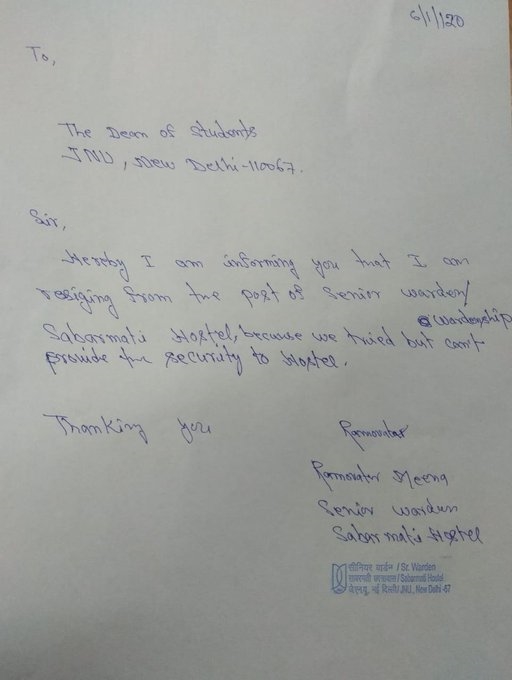 6/1/120
To,
The Dean of Students
JNU, New Delhi-110067.
Sir,
Hereby I am informing you that I am
resiging from the post of Senior warden/
wardenship
Sabarmati Hostel, because we tried but can't
provide the security to Hostel.
Thanking you
Ramavatar
Ramavatar Meena
Senior warden
Sabarmati Hostel
सीनियर वार्डन / Sr. Warden
साबरमती छात्रावास / Sabarmati Hostel
जे.एन.यू., नई दिल्ली / JNU., New Delhi -67